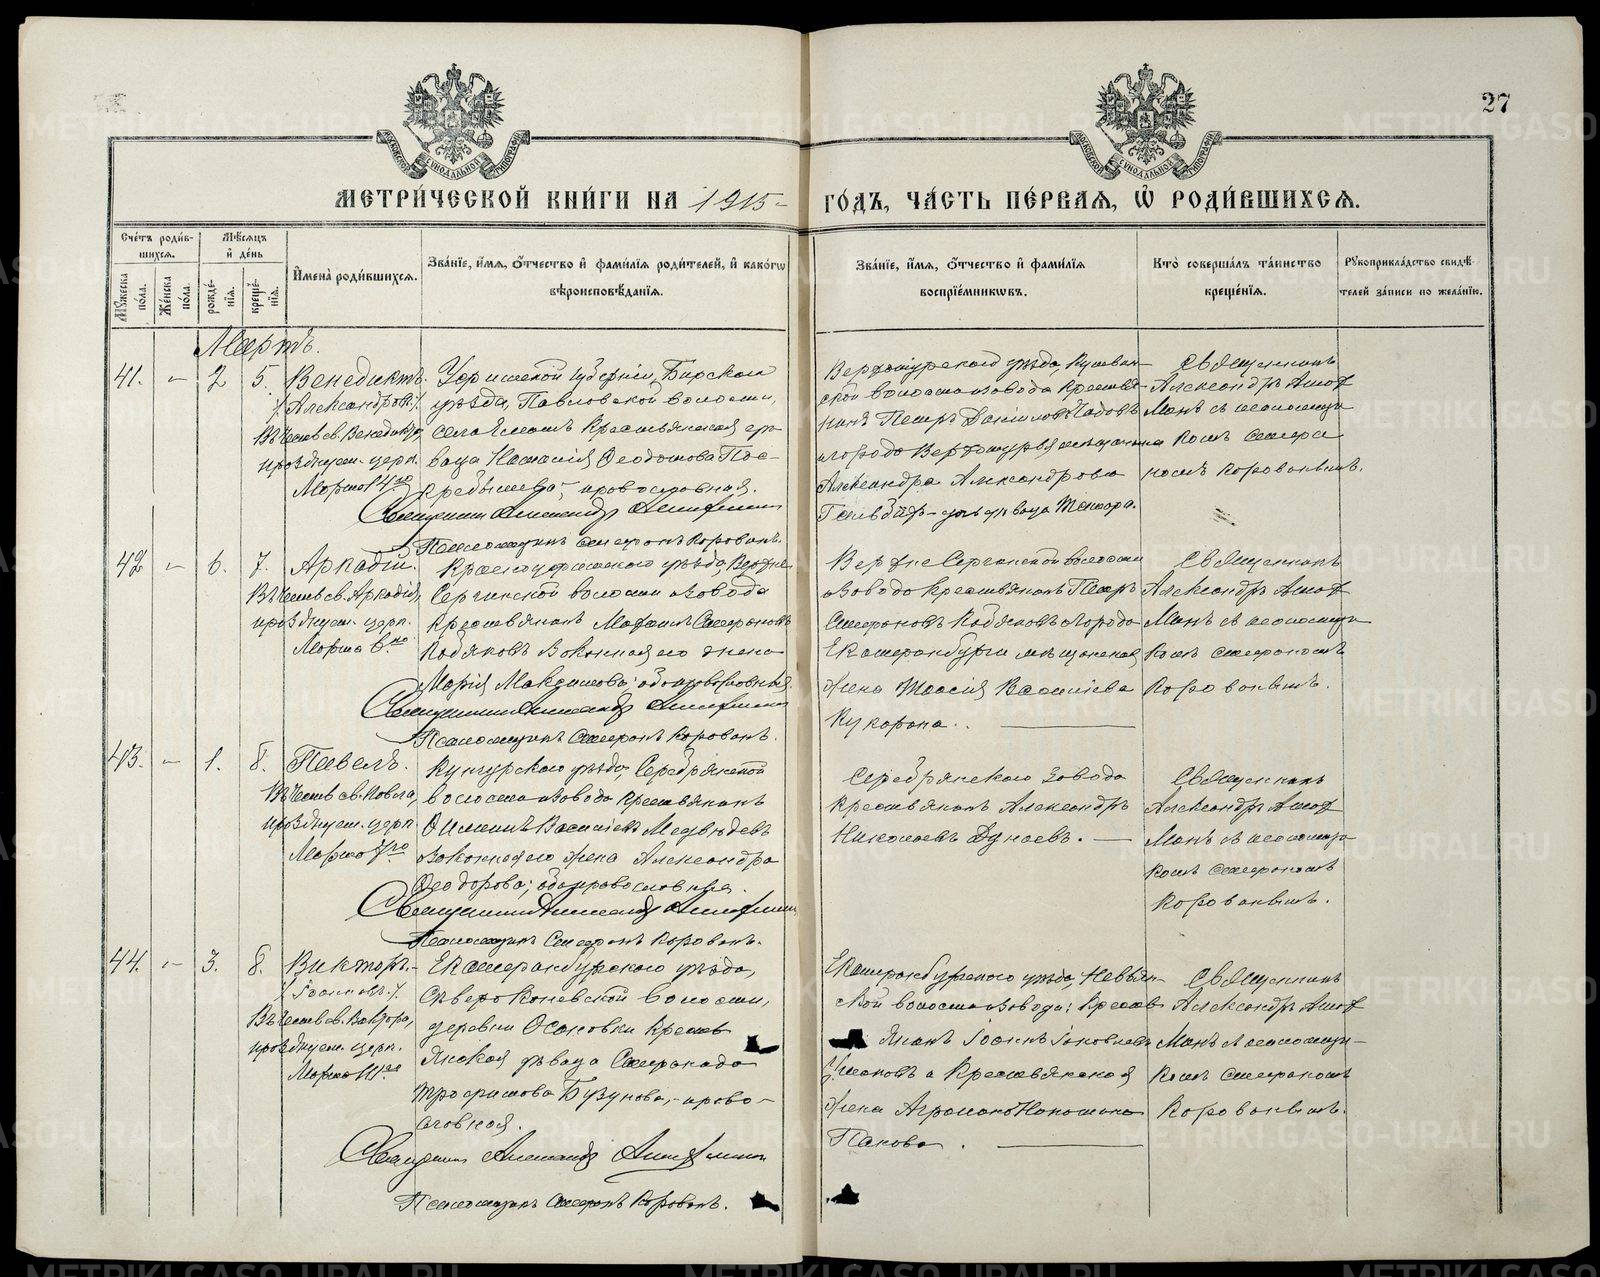 27
МОСКОВСКОЙ СѴНОДАЛЬНОЙ ТИПОГРАФІИ
МОСКОВСКОЙ СѴНОДАЛЬНОЙ ТИПОГРАФІИ
МЕТРИ́ЧЕСКОЙ КНИ́ГИ НА 1915 ГО́ДЪ, ЧА́СТЬ ПЕ́РВАѦ, Ѽ РОДИ́ВШИХСѦ.
Сче́тъ роди́в-
шихсѧ.
Мꙋ́жеска по́ла.
Же́нска по́ла.
Мѣ́сѧцъ
и҆ де́нь
рожде́-нїѧ.
креще́-нїѧ.
И҆мена̀ роди́вшихсѧ.
Зва́нїе, и҆́мѧ, ѻ҆́тчество и҆ фами́лїѧ роди́телей, и҆ како́гѡ
вѣроисповѣ́данїѧ.
Зва́нїе, и҆́мѧ, ѻ҆́тчество и҆ фами́лїѧ
воспрїе́мникѡвъ.
Кто̀ соверша́лъ та́инство
креще́нїѧ.
Рꙋкоприкла́дство свидѣ́-
телей за́писи по жела́нїю.
Мартъ.
41. - 2 5. Венедиктъ.
Александровъ
Въ честь св. Венедикта,
празднуем. церк.
Марта 14го
Уфимской губерніи, Бирскаго
уѣзда, Павловской волости,
села крестьянская дѣ-
вица Ѳеодотова
православная.
Священникъ Александръ
Псаломщикъ Стефанъ Корованъ.
Верхотурскаго уѣзда, Кушвин-
ской волости и завода крестья-
нинъ Петръ Даніиловъ
и города Верхотурья мѣщанина
Александра Александрова
дѣвица
Священникъ
Александръ
съ псаломщи-
комъ Стефа-
номъ Корованымъ.
42 - 6. 7. Аркадій.
Въ честь св. Аркадія,
празднуем. церк.
Марта 6го
Красноуфимскаго уѣзда, Верхне-
Сергинской волости и завода
крестьянинъ Стефановъ
и законная его жена
Марія Максимова; оба православные.
Священникъ Александръ
Псаломщикъ Стефанъ Корованъ.
Верхне Сергинской волости
и завода крестьянинъ Петръ
Стефановъ и города
Екатеринбурга мѣщанская
жена Таисія Васильева
Священникъ
Александръ
съ псаломщи-
комъ Стефаномъ
Корованымъ.
43. - 1. 8. Павелъ.
Въ честь св. Павла,
празднуем. церк.
Марта 7го
Кунгурскаго уѣзда, Серебрянской
волости и завода крестьянинъ
Васильевъ Медвѣдевъ
и законная его жена Александра
Ѳеодорова; оба православные.
Священникъ Александръ
Псаломщикъ Стефанъ Корованъ.
Серебрянскаго завода
крестьянинъ Александръ
Николаевъ Дунаевъ.
Священникъ
Александръ
съ псаломщи-
комъ Стефаномъ
Корованымъ.
44. - 3. 8. Викторъ.
Іоанновъ
Въ честь св. Виктора,
празднуем. церк.
Марта
Екатеринбургскаго уѣзда,
волости,
деревни Осиновки крестьян-
ская дѣвица Стефанида
Трофимова Бузунова, право-
славная.
Священникъ Александръ
Псаломщикъ Стефанъ Корованъ.
Екатеринбургскаго уѣзда, Невьян-
ской волости и завода: крестья-
нинъ Іоаннъ Іаковлевъ
Ушаковъ и крестьянская
жена
Панова.
Священникъ
Александръ
съ псаломщи-
комъ Стефаномъ
Корованымъ.
METRIKI.GASO-URAL.RU